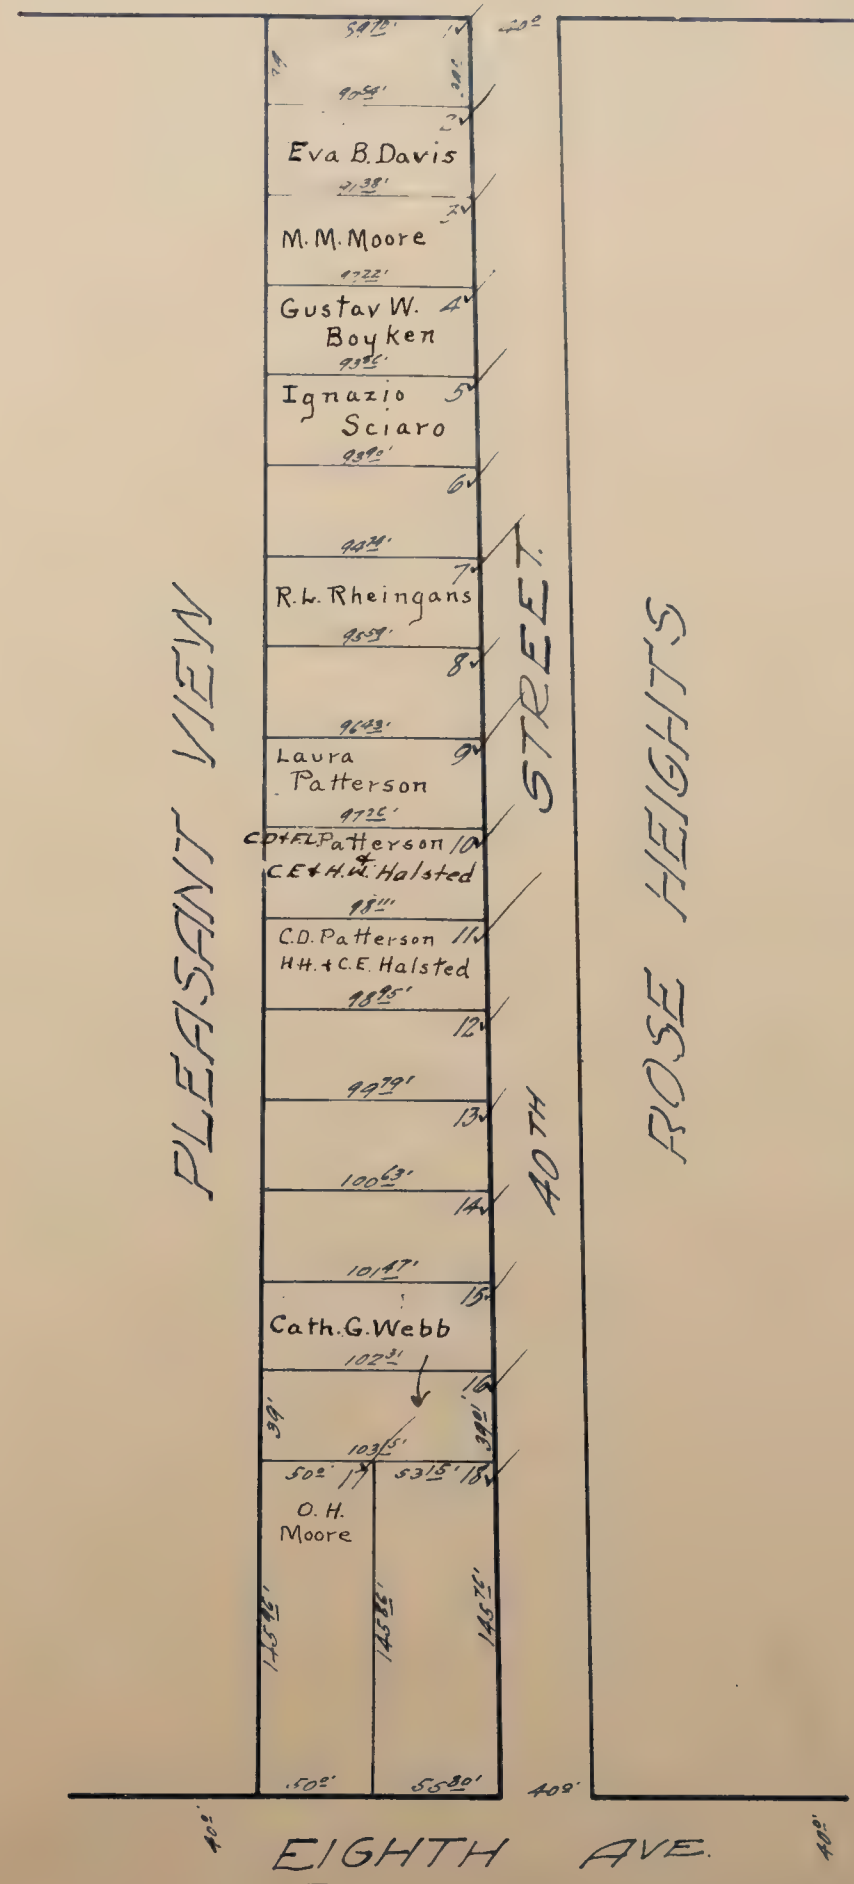 40º
1
90⁵⁴'
2
Eva B. Davis
91³⁸'
3
M. M. Moore
92²²'
Gustav W. 4
Boyken
Ignazio 5
Sciaro
93⁹⁰'
6
94⁷⁴'
7
R. L. Rheingans
95⁵⁹'
8
96⁴³'
Laura 9
Patterson
97²⁶'
C.D & F.L. Patterson 10
&
C.E & H.W. Halsted
98¹¹'
C.D. Patterson 11
H.H. & C.E. Halsted
98⁹⁵'
12
99⁷⁹'
13
100⁶³'
14
101⁴⁷'
15
Cath. G. Webb
102³¹'
16
39'
39⁰¹'
103¹⁵'
50º' 17 53¹⁵' 18
O. H.
Moore
145⁹⁶'
145⁸⁶'
145⁷⁶'
50º' 55⁸⁰' 40º'
PLEASANT VIEW
40TH STREET.
ROSE HEIGHTS
40º'
40º'
EIGHTH AVE.